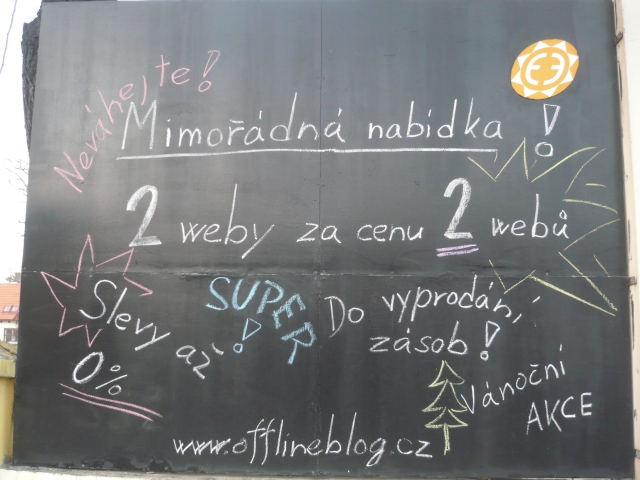 Neváhejte!
Mimořádná nabídka!
2 weby za cenu 2 webů
Slevy až
0%
SUPER!
Do vyprodání
zásob!
Vánoční
AKCE
www.offlineblog.cz